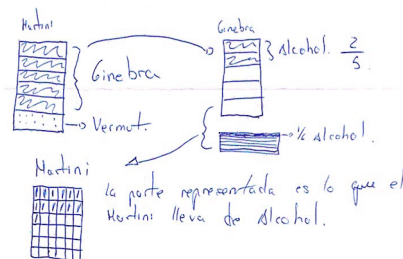 Martini
Ginebra
Ginebra
Alcohol. 2/5
Vermut.
1/6 Alcohol.
Martini
la parte representada es lo que el
Martini lleva de Alcohol.